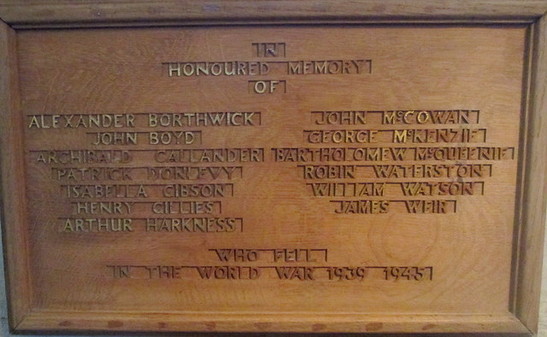 IN
HONOURED MEMORY
OF
ALEXANDER BORTHWICK
JOHN BOYD
ARCHIBALD CALLANDER
PATRICK DONLEVY
ISABELLA GIBSON
HENRY GILLIES
ARTHUR HARKNESS
JOHN McCOWAN
GEORGE McKENZIE
BARTHOLOMEW McQUEENIE
ROBIN WATERSTON
WILLIAM WATSON
JAMES WEIR
WHO FELL
IN THE WORLD WAR 1939 1945